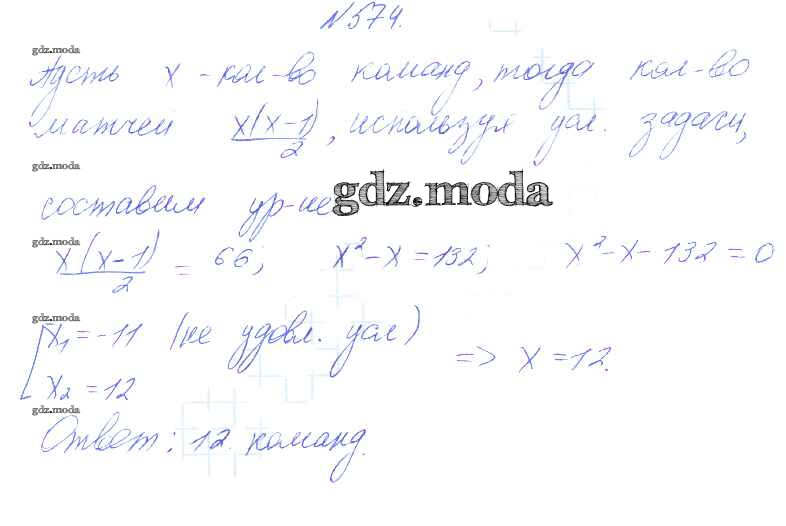 №574.
gdz.moda
Пусть x - кол-во команд, тогда кол-во
матчей x(x-1)/2, используя усл. задачи,
gdz.moda
составим ур-ие
gdz.moda
gdz.moda
x(x-1)/2 = 66; x²-x=132; x²-x-132=0
gdz.moda
[x₁=-11 (не удовл. усл)
x₂=12 => x=12.
gdz.moda
Ответ: 12 команд.